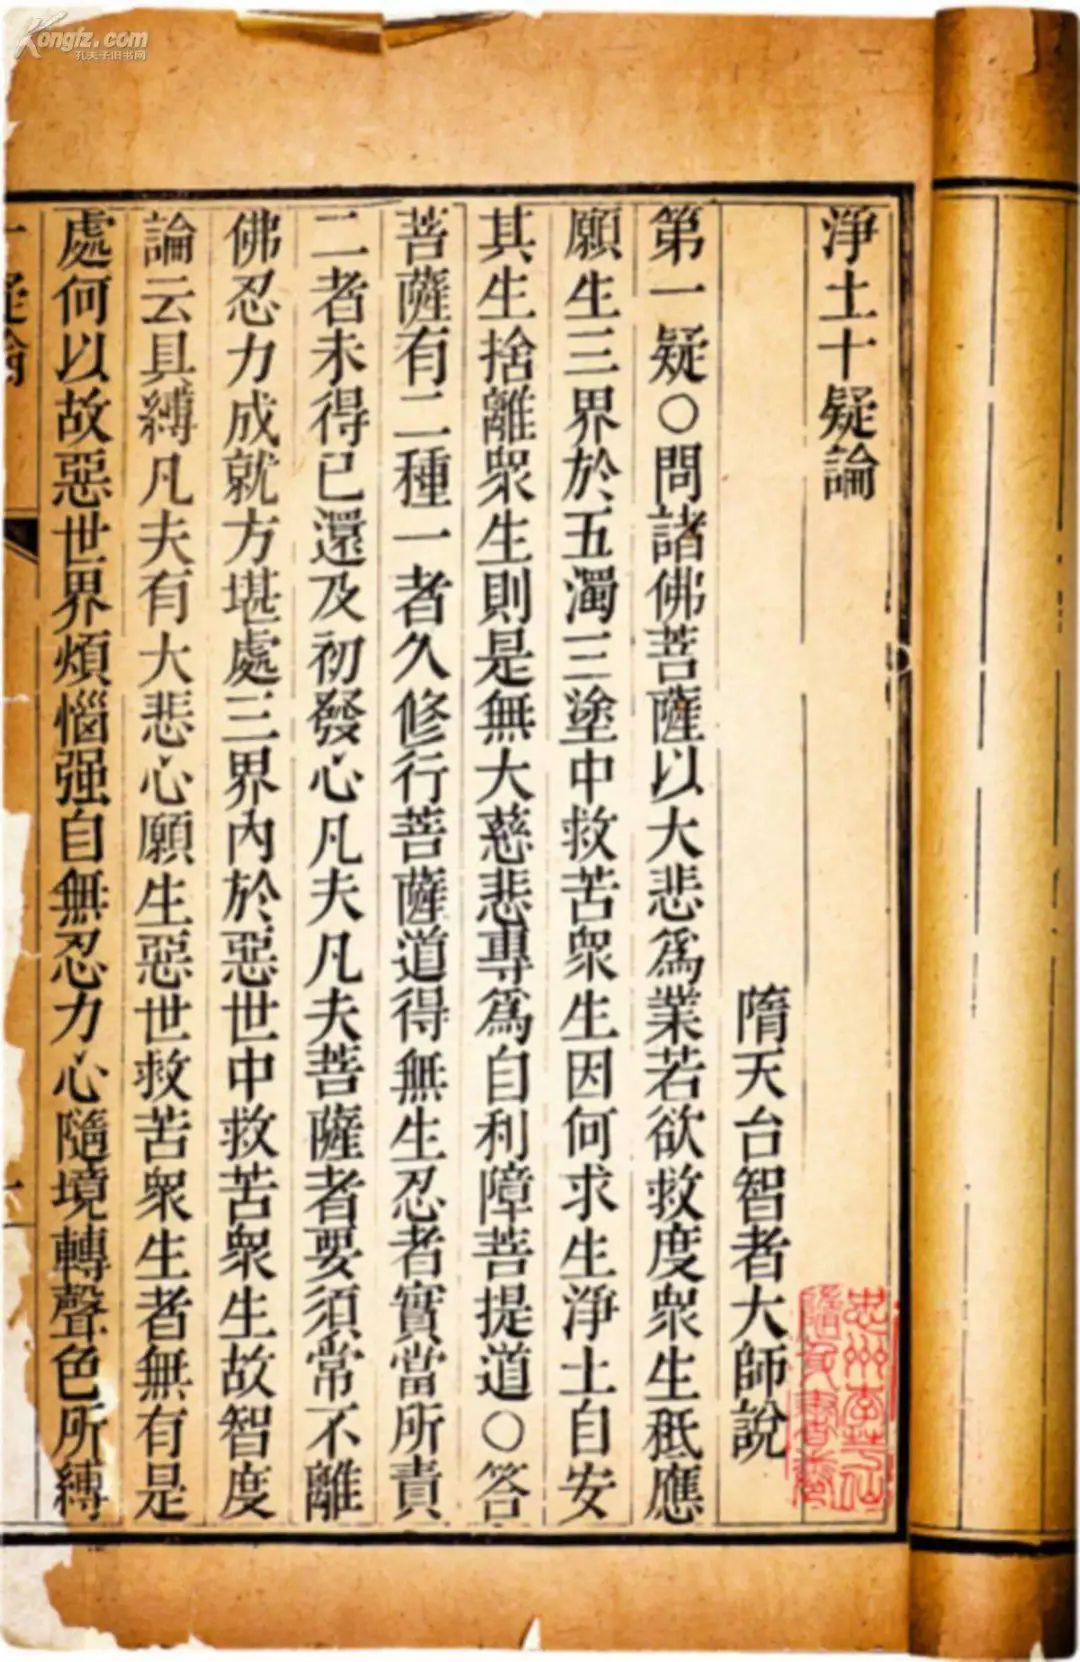 Kongfz.com
孔夫子旧书网
淨土十疑論
隋天台智者大師說
第一疑○問諸佛菩薩以大悲爲業若欲救度衆生秖應
願生三界於五濁三塗中救苦衆生因何求生淨土自安
其生捨離衆生則是無大慈悲專爲自利障菩提道○答
菩薩有二種一者久修行菩薩道得無生忍者實當所責
二者未得已還及初發心凡夫凡夫菩薩者要須常不離
佛忍力成就方堪處三界內於惡世中救苦衆生故智度
論云具縛凡夫有大悲心願生惡世救苦衆生者無有是
處何以故惡世界煩惱强自無忍力心隨境轉聲色所縛
十疑論
一